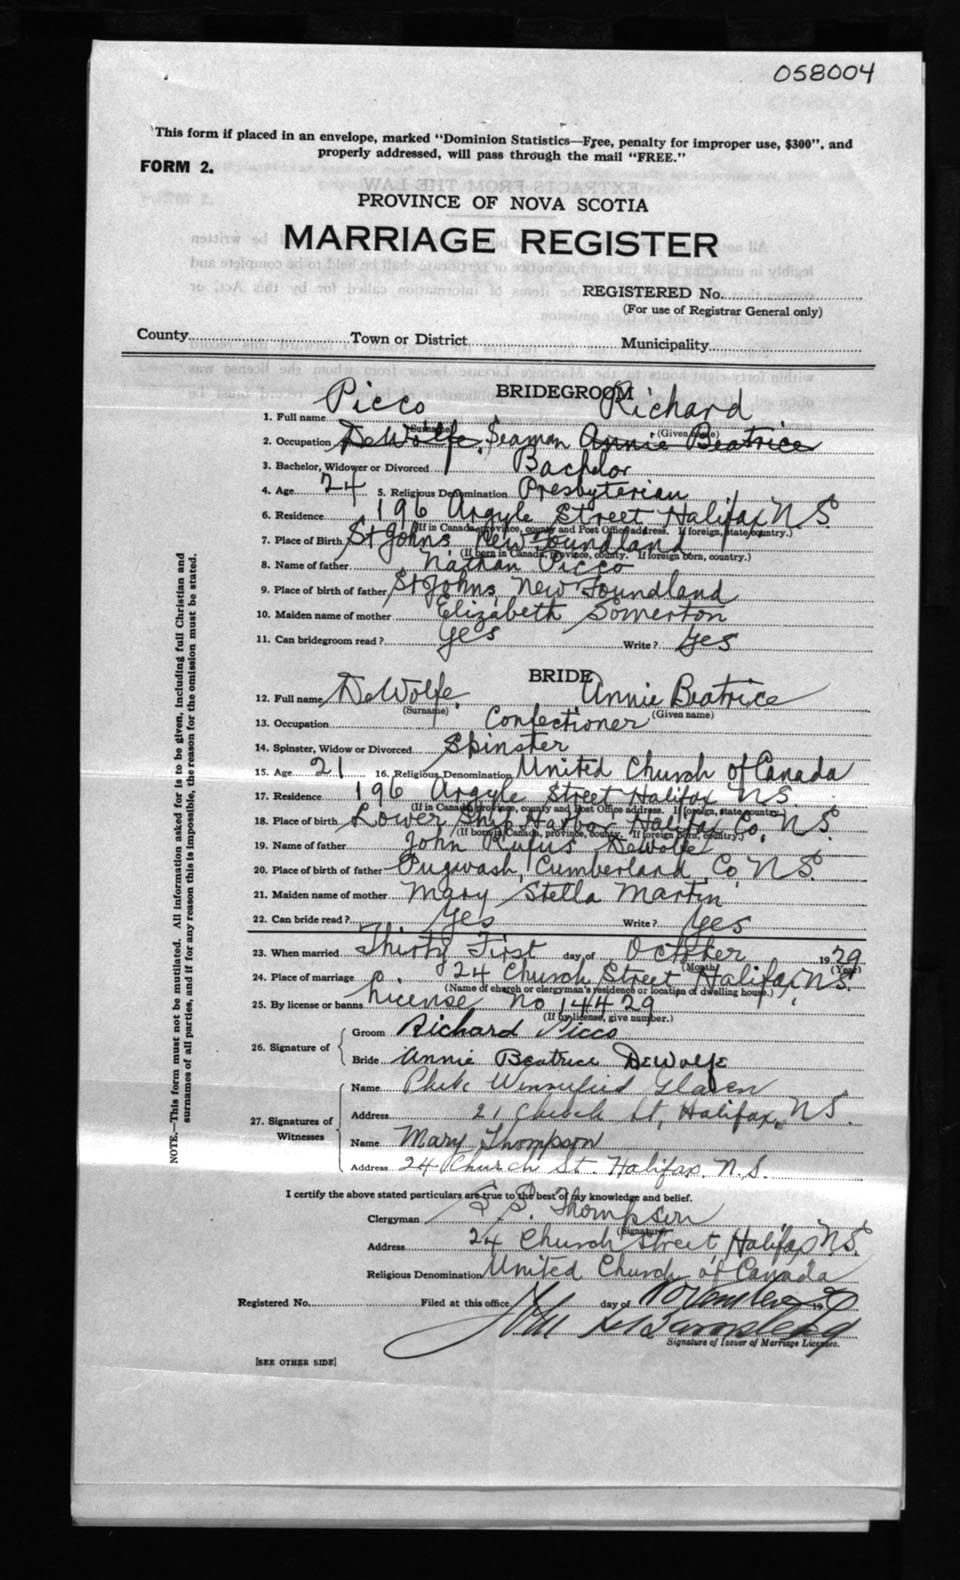 058004
This form if placed in an envelope, marked "Dominion Statistics—Free, penalty for improper use, $300", and
properly addressed, will pass through the mail "FREE."
FORM 2.
PROVINCE OF NOVA SCOTIA
MARRIAGE REGISTER
REGISTERED No.
(For use of Registrar General only)
County Town or District Municipality
BRIDEGROOM
1. Full name Picco Richard
(Surname) (Given name)
2. Occupation DeWolfe, Seaman Annie Beatrice
3. Bachelor, Widower or Divorced Bachelor
4. Age 24 5. Religious Denomination Presbyterian
6. Residence 196 Argyle Street Halifax NS
(If in Canada, province, county and Post Office address. If foreign, state country.)
7. Place of Birth St Johns New Foundland
(If born in Canada, province, county. If foreign born, country.)
8. Name of father Nathan Picco
9. Place of birth of father St Johns, New Foundland
10. Maiden name of mother Elizabeth Somerton
11. Can bridegroom read? yes Write? yes
BRIDE
12. Full name DeWolfe, Annie Beatrice
(Surname) (Given name)
13. Occupation Confectioner
14. Spinster, Widow or Divorced Spinster
15. Age 21 16. Religious Denomination United Church of Canada
17. Residence 196 Argyle Street Halifax NS.
(If in Canada, province, county and Post Office address. If foreign, state country.)
18. Place of birth Lower Ship Harbor Halifax Co, NS.
(If born in Canada, province, county. If foreign born, country.)
19. Name of father John Rufus DeWolfe
20. Place of birth of father Pugwash, Cumberland Co NS.
21. Maiden name of mother Mary Stella Martin
22. Can bride read? Yes Write? Yes
23. When married Thirty First day of October 1929
(Month) (Year)
24. Place of marriage 24 Church Street Halifax, NS.
(Name of church or clergyman's residence or location of dwelling house.)
25. By license or banns License No 14429
(If by license, give number.)
26. Signature of Groom Richard Picco
Bride Annie Beatrice DeWolfe
27. Signatures of Witnesses
Name Winnifred
Address 21 Church St, Halifax, NS.
Name Mary Thompson
Address 24 Church St. Halifax. N.S.
I certify the above stated particulars are true to the best of my knowledge and belief.
Clergyman Thompson
(Signature)
Address 24 Church Street, Halifax NS.
Religious Denomination United Church of Canada
Registered No. Filed at this office day of November 19
John
Signature of Issuer of Marriage Licenses.
[SEE OTHER SIDE]
NOTE.—This form must not be mutilated. All information asked for is to be given, including full Christian and
surnames of all parties, and if for any reason this is impossible, the reason for the omission must be stated.